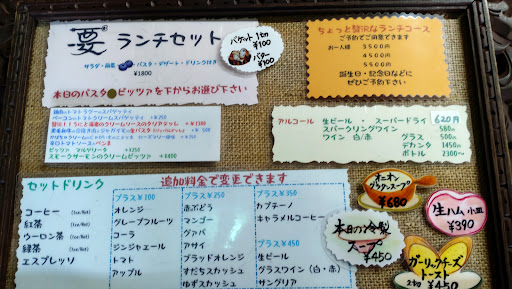 要 ランチセット
サラダ・前菜 パスタ・デザート・ドリンク付き
¥1800
本日のパスタ ピッツァ を下からお選び下さい
バケット 1ケ
¥100
バター
¥100
ちょっと贅沢なランチコース
ご予約でご用意できます
お一人様 3500円
4500円
5500円
誕生日・記念日などに
ぜひご予約下さい
スパゲッティ
ベーコンのトマトクリームのスパゲッティ +¥250
クリームソースのタリアテッレ +¥300
生パスタ +¥500
辛口トマトソースのペンネ
ピッツァ マルゲリータ +¥250
スモークサーモンのクリームピッツァ +¥400
アルコール 生ビール・スーパードライ 620円
スパークリングワイン 580
ワイン 白/赤 グラス 500
デカンタ 1450
ボトル 2300
セットドリンク 追加料金で変更できます
コーヒー (Ice/Hot)
紅茶 (Ice/Hot)
ウーロン茶 (Ice/Hot)
緑茶 (Ice/Hot)
エスプレッソ
プラス¥100
オレンジ
グレープフルーツ
コーラ
ジンジャエール
トマト
アップル
プラス¥250
赤ぶどう
マンゴー
グァバ
アサイ
ブラッドオレンジ
すだちスカッシュ
ゆずスカッシュ
プラス¥350
カプチーノ
キャラメルコーヒー
プラス¥450
生ビール
グラスワイン(白・赤)
サングリア
オニオン
グラタンスープ
¥680
生ハム 小皿
¥390
本日の冷製
スープ
¥450
ガーリックチーズ
トースト
2切 ¥450